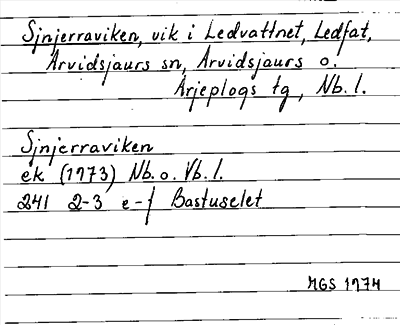 Sjnjerraviken, vik i Ledvattnet, Ledfat,
Arvidsjaurs sn, Arvidsjaurs o.
Arjeplogs tg, Nb. l.
Sjnjerraviken
ek (1973) Nb. o. Vb. l.
241 2-3 e-f Bastuselet
MGS 1974